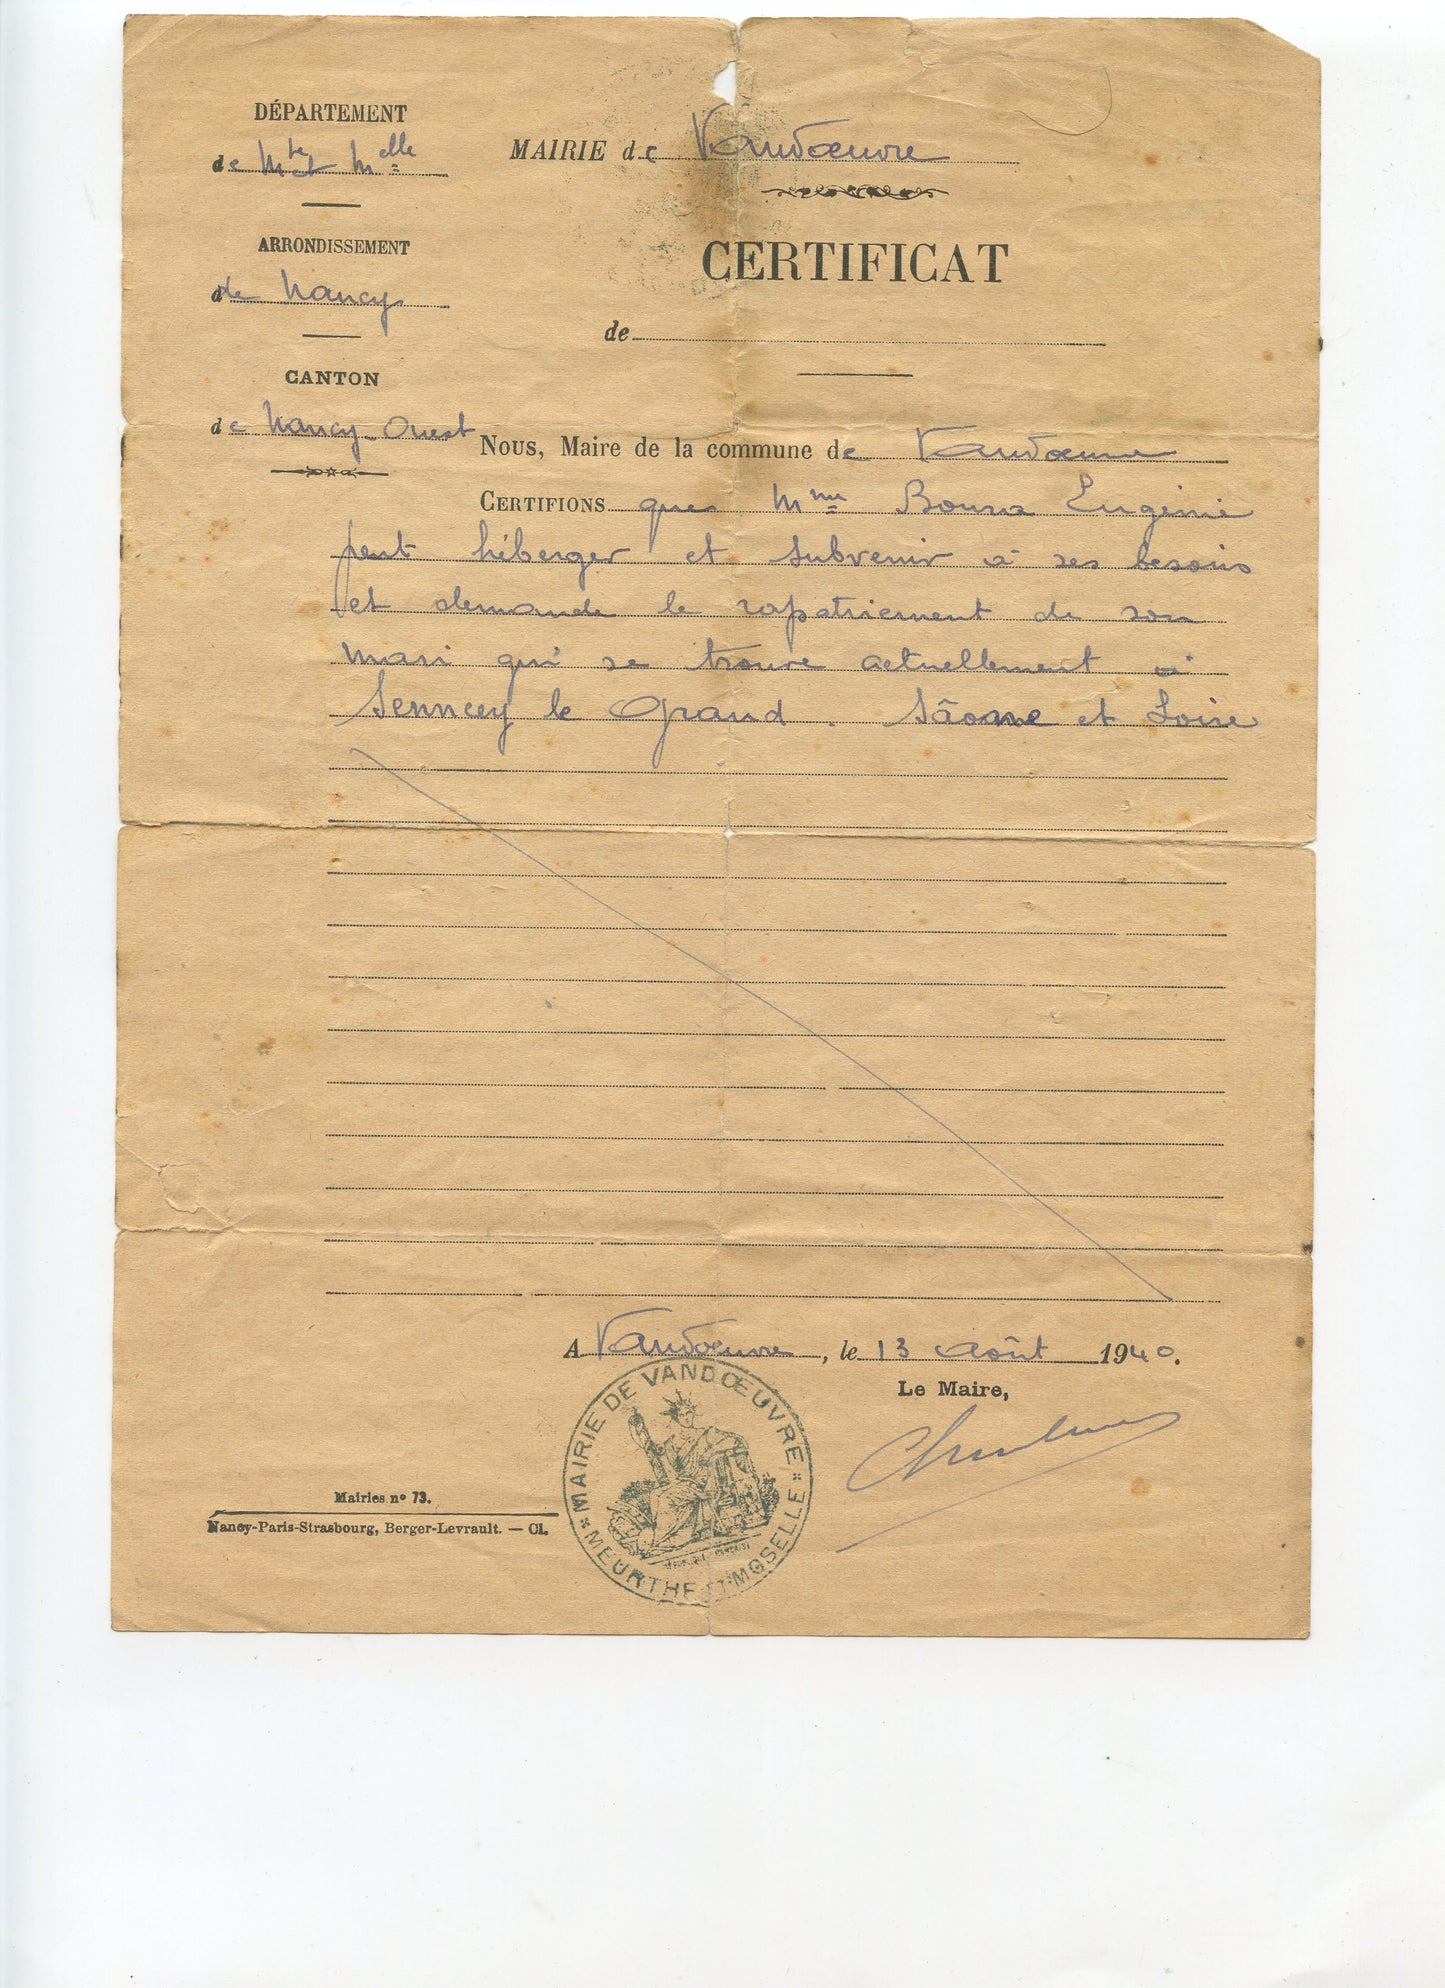 DÉPARTEMENT
de Mthe et Melle
ARRONDISSEMENT
de Nancy
CANTON
de Nancy-Ouest
MAIRIE de Vandœuvre
CERTIFICAT
de
Nous, Maire de la commune de Vandœuvre
CERTIFIONS que Mme Eugénie
peut héberger et subvenir à ses besoins
et demande le rapatriement de son
mari qui se trouve actuellement à
Sennecey le Grand. Sâone et Loire
A Vandœuvre, le 13 Août 1940.
Le Maire,
MAIRIE DE VANDŒUVRE
MEURTHE ET MOSELLE
Mairies nº 73.
Nancy-Paris-Strasbourg, Berger-Levrault. — Cl.